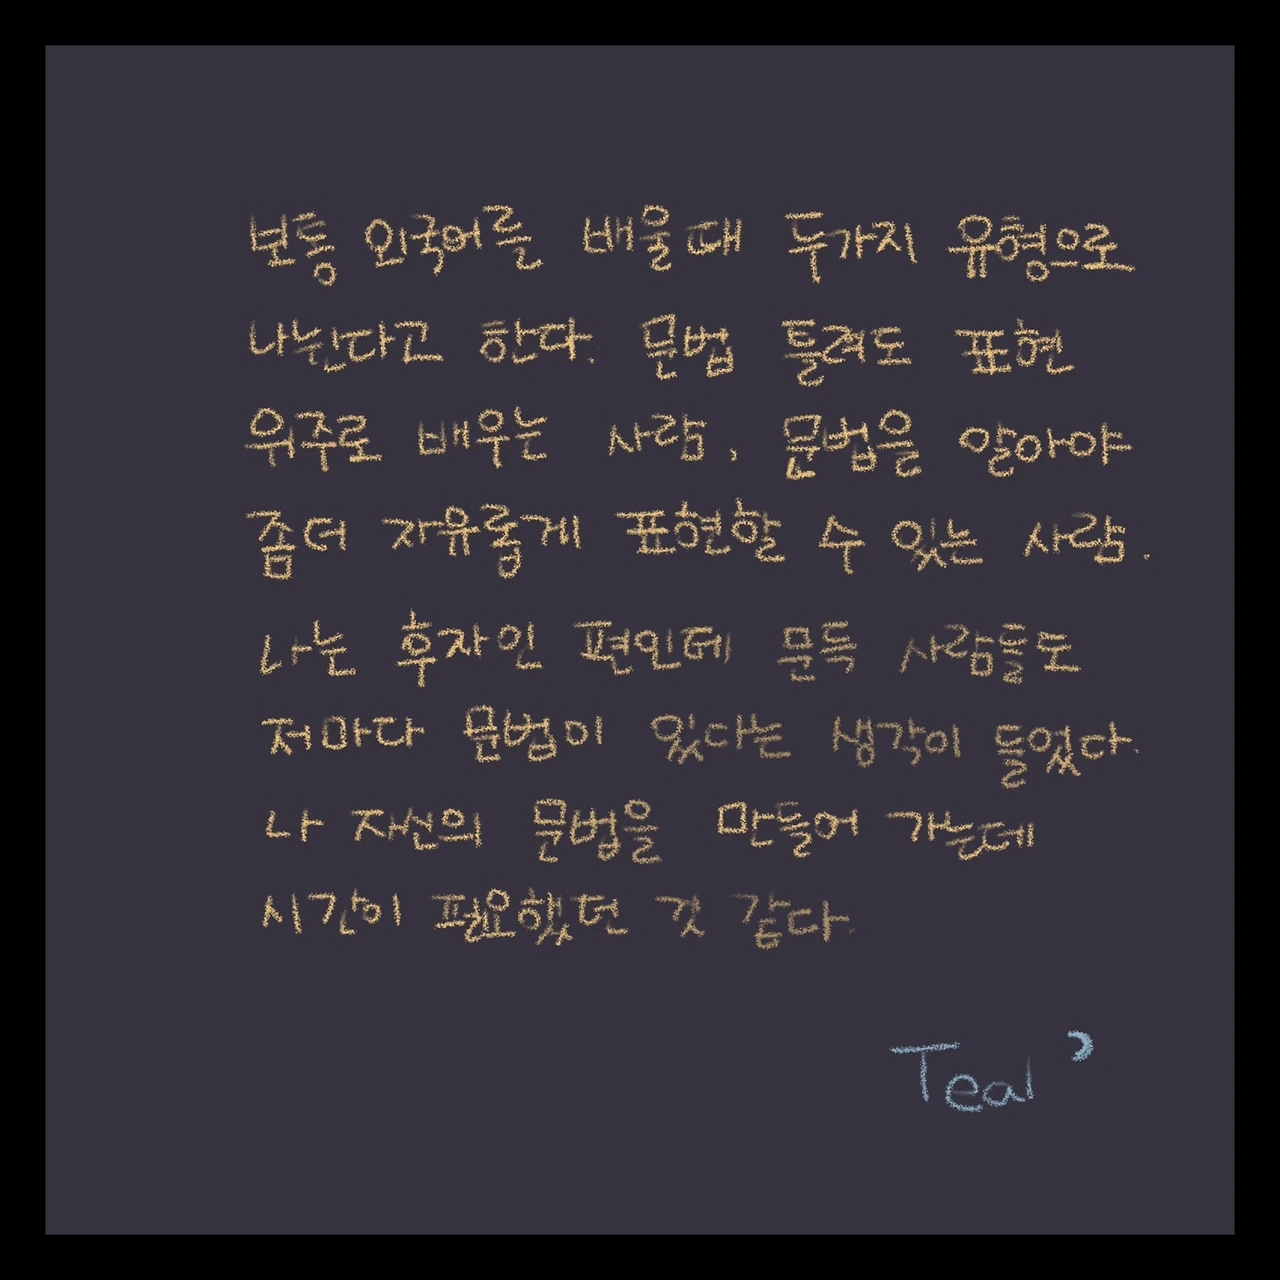 보통 외국어를 배울 때 두가지 유형으로
나뉜다고 한다. 문법 틀려도 표현
위주로 배우는 사람, 문법을 알아야
좀더 자유롭게 표현할 수 있는 사람.
나는 후자인 편인데 문득 사람들도
저마다 문법이 있다는 생각이 들었다.
나 자신의 문법을 만들어 가는데
시간이 필요했던 것 같다.
Teal